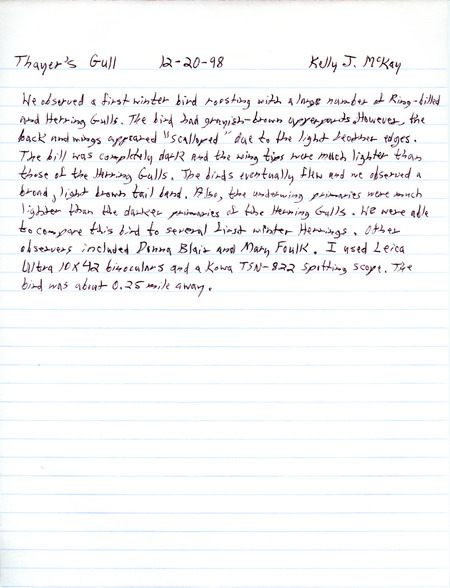 Thayer's Gull 12-20-98 Kelly J. McKay
We observed a first winter bird roosting with a large number of Ring-billed
and Herring Gulls. The bird had grayish-brown upperparts. However, the
back and wings appeared "scalloped" due to the light feather edges.
The bill was completely dark and the wing tips were much lighter than
those of the Herring Gulls. The birds eventually flew and we observed a
broad, light brown tail band. Also, the underwing primaries were much
lighter than the darker primaries of the Herring Gulls. We were able
to compare this bird to several first winter Herrings. Other
observers included Donna Blair and Mary Foulk. I used Leica
Ultra 10x42 binoculars and a Kowa TSN-822 spotting scope. The
bird was about 0.25 mile away.